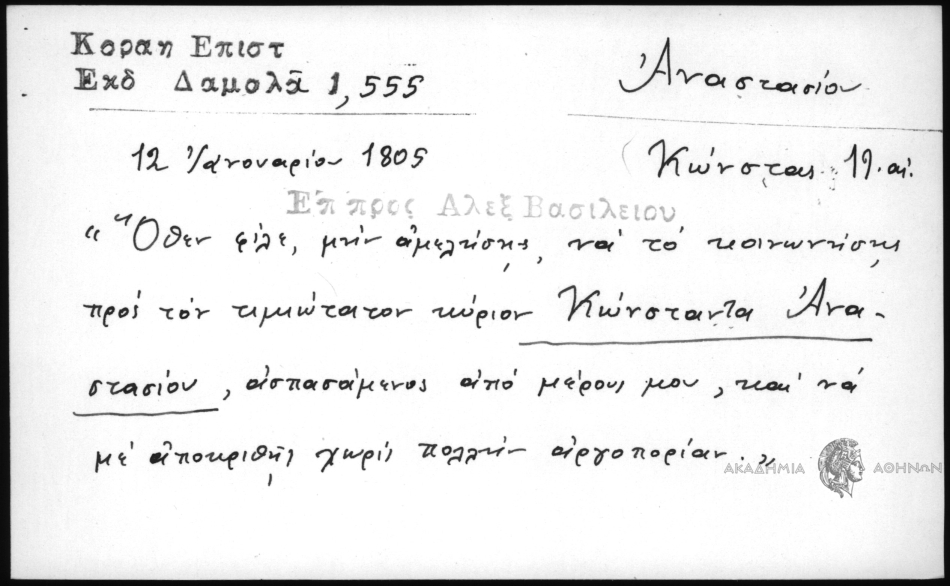 Κοραη Επιστ
Εκδ Δαμολᾶ 1,555
Ἀναστασίου
12 Ἰανουαρίου 1805
Κώνστας 19. αἰ.
Επ προς Αλεξ Βασιλειου
"Ὅθεν φίλε, μὴν ἀμελήσῃς, νὰ τὸ κοινωνήσῃς
πρὸς τὸν τιμιώτατον κύριον Κώνσταντα Ἀνα-
στασίου, ἀσπασάμενος ἀπὸ μέρους μου, καὶ νὰ
μὲ ἀποκριθῇς χωρὶς πολλὴν ἀργοπορίαν."
ΑΚΑΔΗΜΙΑ ΑΘΗΝΩΝ